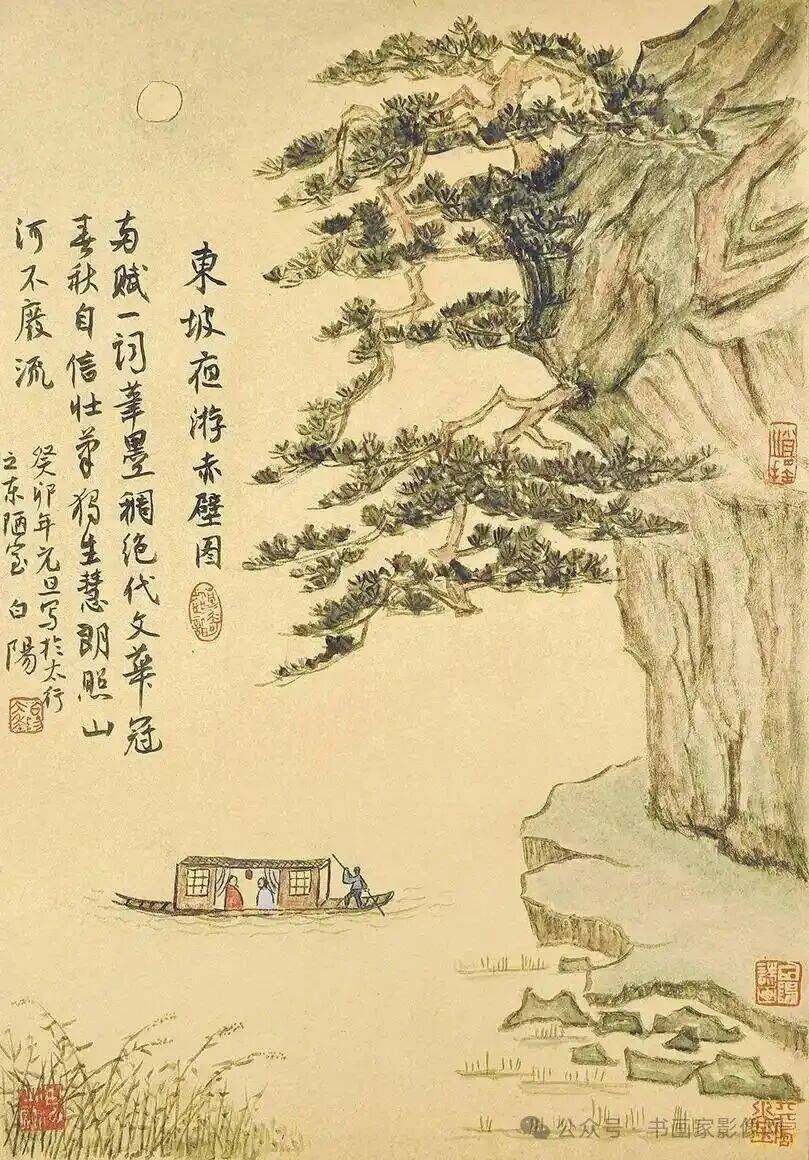 東坡夜游赤壁图
两赋一词筆墨稠绝代文華冠
春秋自信壮生慧朗照山
河不廢流
癸卯年元旦写於太行
之东陋室 白陽
公众号 书画家影像